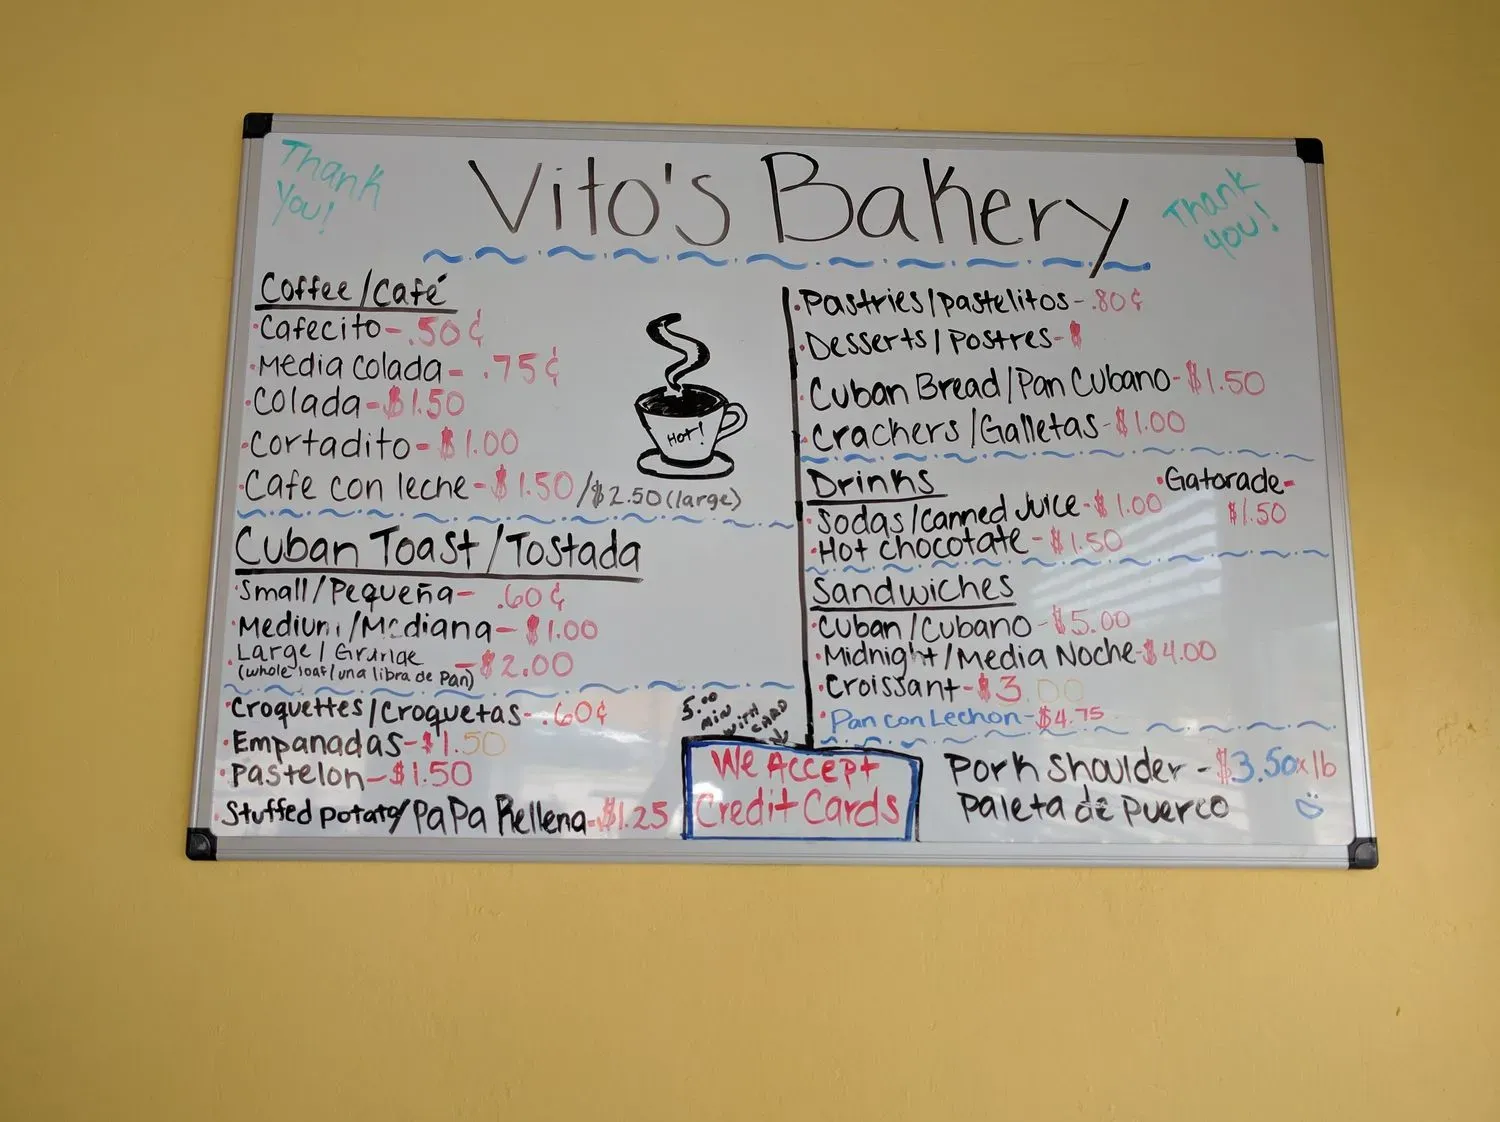 Thank You!
Vito's Bakery
Thank you!
Coffee/Café
·Cafecito-.50¢
·Media Colada-.75¢
·Colada-$1.50
·Cortadito-$1.00
·Cafe con leche-$1.50/$2.50(large)
Hot!
Cuban Toast/Tostada
·Small/Pequeña-.60¢
·Medium/Mediana-$1.00
·Large/Grande
(whole loaf/una libra de pan)-$2.00
·Croquettes/Croquetas-.60¢
·Empanadas-$1.50
·Pastelon-$1.50
·Stuffed potato/PaPa Rellena-$1.25
5.00 MIN WITH CARD
We Accept
Credit Cards
·Pastries/pastelitos-.80¢
·Desserts/Postres-$
·Cuban Bread/Pan Cubano-$1.50
·Crackers/Galletas-$1.00
Drinks
·Sodas/Canned Juice-$1.00
·Gatorade-
$1.50
·Hot chocotate-$1.50
Sandwiches
·Cuban/Cubano-$5.00
·Midnight/Media Noche-$4.00
·Croissant-$3.00
·Pan con Lechon-$4.75
Pork Shoulder-$3.50x1b
Paleta de Puerco